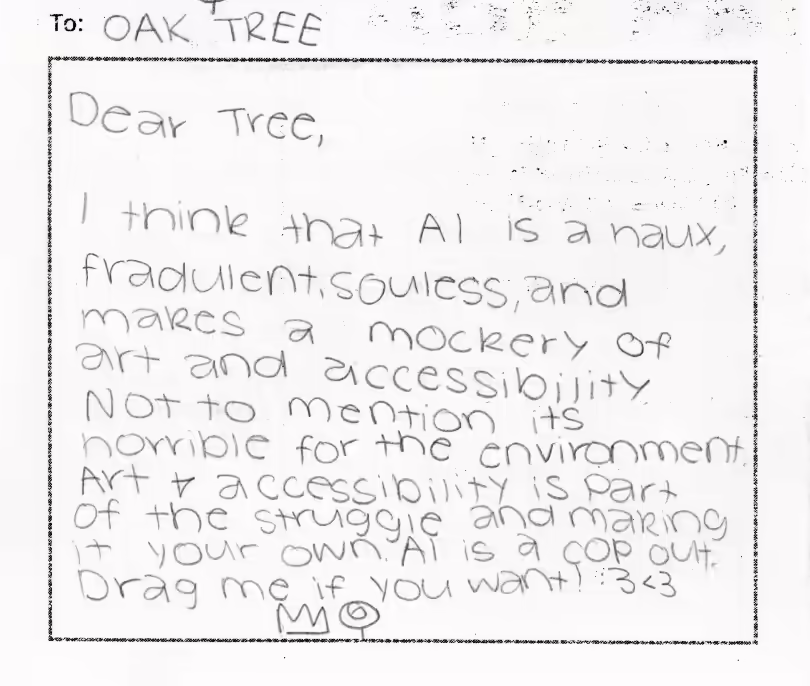 To: OAK TREE
Dear Tree,
I think that AI is a naux,
fradulent, souless, and
makes a mockery of
art and accessibility
Not to mention its
horrible for the environment.
Art & accessibility is part
of the struggle and making
it your own. AI is a cop out.
Drag me if you want! :3 <3